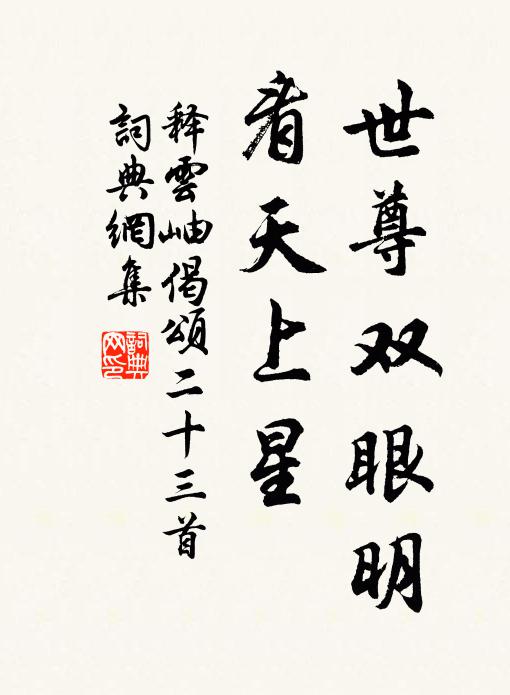 世尊双眼明
看天上星
释雲岫偈頌二十三首
詞典網集
詞典網印